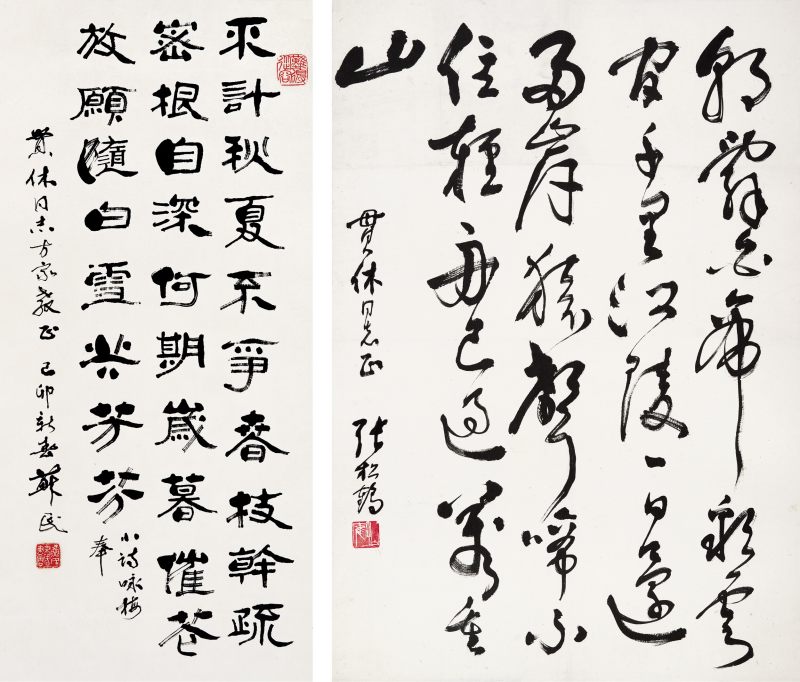 計秋夏不爭春枝幹疏
密根自深何期歲暮催花
放願隨白雪共芳芬
小詩咏梅
奉
貫休同志方家教正 己卯新春 蘇民
朝辭白帝彩雲
間千里江陵一日還
兩岸猿聲啼不
住輕舟已過萬重
山
貫休同志正 張松鶴